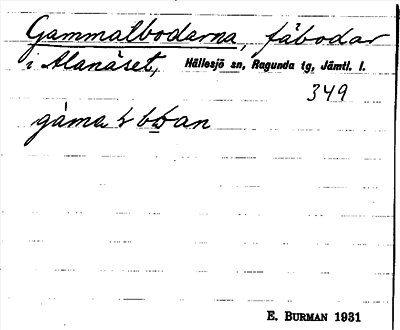 Gammalbodarna, fäbodar
i Alanäset, Hällesjö sn, Ragunda tg, Jämtl. l.
349
E. BURMAN 1931